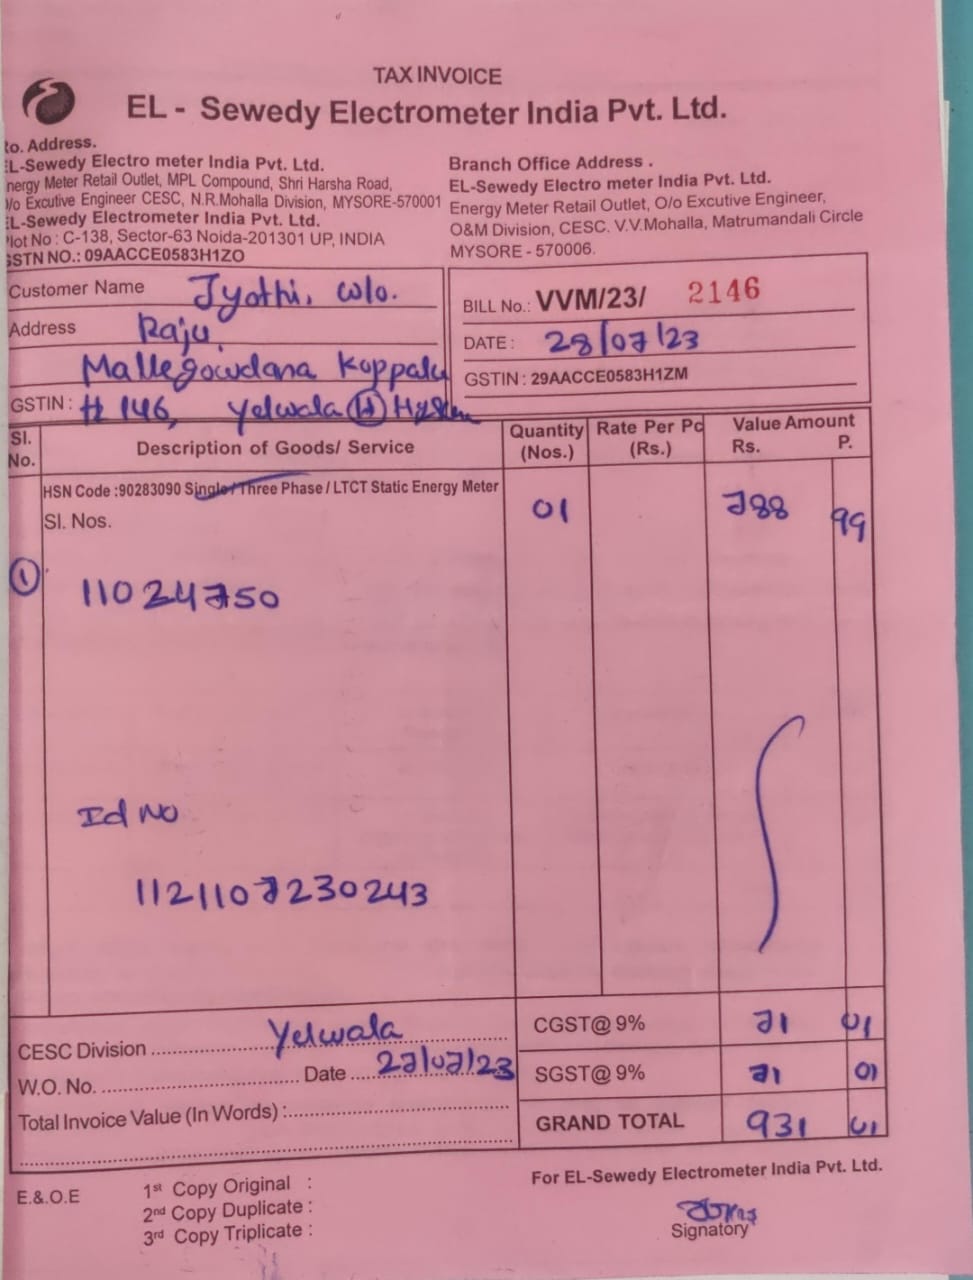 TAX INVOICE
EL - Sewedy Electrometer India Pvt. Ltd.
o. Address.
EL-Sewedy Electro meter India Pvt. Ltd.
nergy Meter Retail Outlet, MPL Compound, Shri Harsha Road,
/o Excutive Engineer CESC, N.R.Mohalla Division, MYSORE-570001
EL-Sewedy Electrometer India Pvt. Ltd.
lot No : C-138, Sector-63 Noida-201301 UP, INDIA
GSTN NO.: 09AACCE0583H1ZO
Branch Office Address .
EL-Sewedy Electro meter India Pvt. Ltd.
Energy Meter Retail Outlet, O/o Excutive Engineer,
O&M Division, CESC. V.V.Mohalla, Matrumandali Circle
MYSORE - 570006.
Customer Name Jyothi. W/o.
Address Raju
Mallegowdana Koppalu
GSTIN : # 146, Yelwala (H)
BILL No.: VVM/23/ 2146
DATE : 28/07/23
GSTIN : 29AACCE0583H1ZM
Sl. No. Description of Goods/ Service Quantity (Nos.) Rate Per Pc (Rs.) Value Amount Rs. P.
HSN Code :90283090 Single/Three Phase / LTCT Static Energy Meter 01 788 99
Sl. Nos.
1 11024750
Id No
1121107230243
CESC Division Yelwala
W.O. No. Date 27/07/23
Total Invoice Value (In Words) :
CGST@ 9% 71 01
SGST@ 9% 71 01
GRAND TOTAL 931 01
E.&.O.E
1st Copy Original :
2nd Copy Duplicate :
3rd Copy Triplicate :
For EL-Sewedy Electrometer India Pvt. Ltd.
Signatory